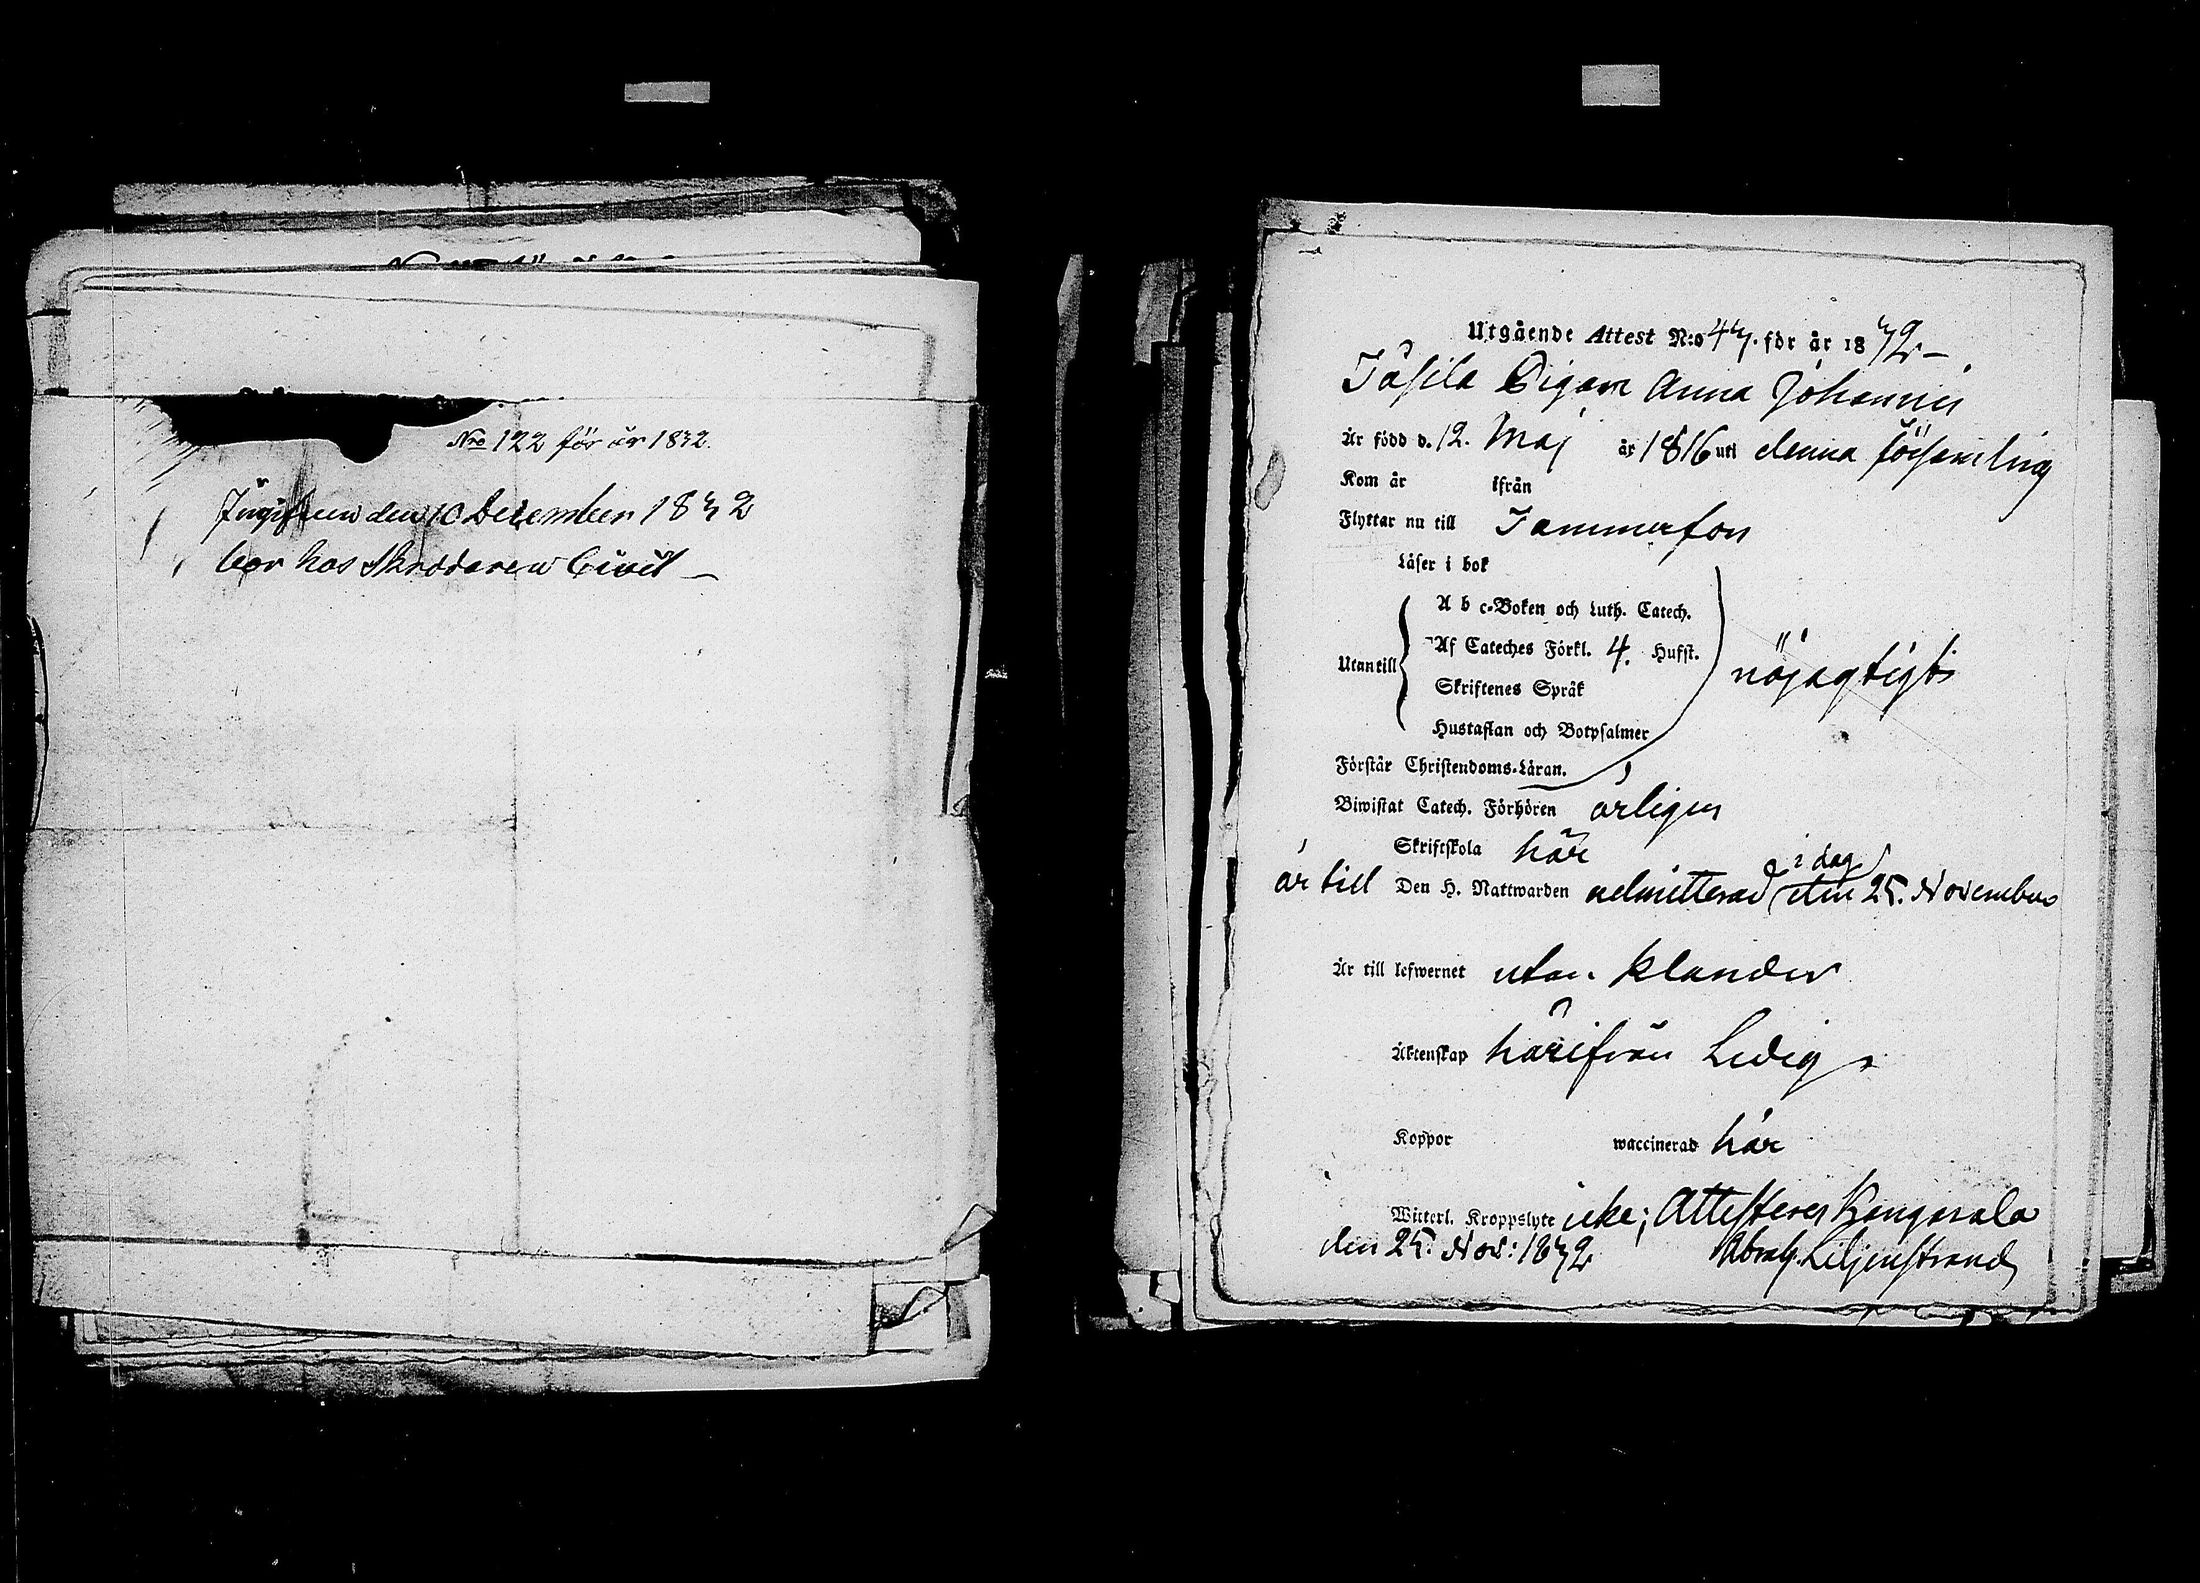 Nro 122 för år 1832.
Ingifven den 10 December 1832
bor hos Skräddaren Civil
Utgående Attest N:o 43. för år 1832
Pigan Anna Johanni
Är född d. 12. Maj år 1816 uti denna församling
Kom år ifrån
Flyttar nu till Tammerfors
Läser i bok
A b c-Boken och Luth. Catech.
Utantill
Af Cateches Förkl. 4. Hufst.
Skriftenes Språk
nöjagtigt
Hustaflan och Botpsalmer
Förstår Christendoms-Läran.
Biwistat Catech. Förhören årligen
Skriftskola här
i dag
är till Den H. Nattwarden admitterad den 25. November
Är till lefwernet utan klander
Äktenskap härifrån Ledig
Koppor waccinerad här
Witterl. Kroppslyte icke; Attesterar Kangasala
den 25. Nov: 1832 Abrah. Liljenstrand